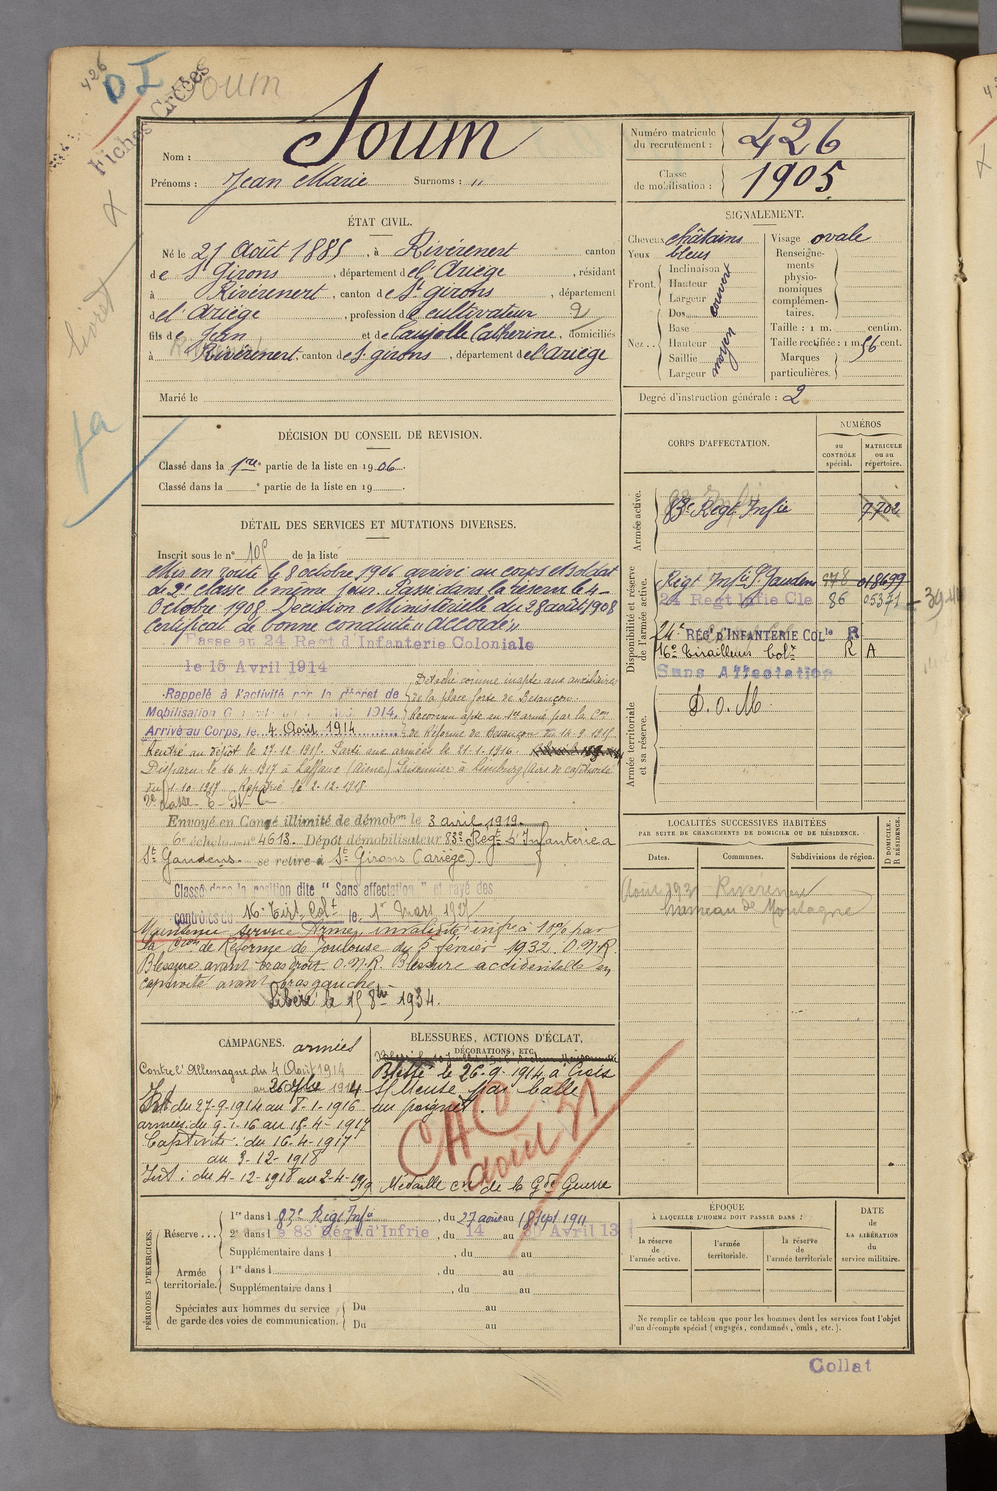 426
DI
Soum
Fiches Croisées
Soum
Nom :
Prénoms : Jean Marie Surnoms : "
Numéro matricule du recrutement : 426
Classe de mobilisation : 1905
ÉTAT CIVIL.
Né le 21 Août 1885, à Rivérenert canton
de St Girons, département de l'Ariège, résidant
à Rivérenert, canton de St girons, département
de l'Ariège, profession de cultivateur 2
fils de Jean et de Caujolle Catherine, domiciliés
à Rivérenert, canton de St girons, département de l'ariège
Marié le
SIGNALEMENT.
Cheveux châtains
Yeux bleus
Front. Inclinaison
Hauteur
Largeur
couvert
Nez Dos
Base
Hauteur
Saillie
Largeur
moyen
Visage ovale
Renseignements physionomiques complémentaires.
Taille : 1 m. centim.
Taille rectifiée : 1 m 56 cent.
Marques particulières.
Degré d'instruction générale : 2
DÉCISION DU CONSEIL DE REVISION.
Classé dans la 1re partie de la liste en 1906.
Classé dans la e partie de la liste en 19
DÉTAIL DES SERVICES ET MUTATIONS DIVERSES.
Inscrit sous le n° 105 de la liste
Mis en route le 8 octobre 1906 arrivé au corps et soldat
de 2e classe le même jour. Passé dans la réserve le 4
Octobre 1908. Décision Ministérielle du 28 août 1908
Certificat de bonne conduite "Accordé"
Passé au 24 Regt d'Infanterie Coloniale
le 15 Avril 1914
Rappelé à l'activité par le décret de
Mobilisation 1914.
Arrivé au Corps, le 4 Août 1914
Détaché comme inapte aux auxiliaires
de la place forte de Besançon.
Reconnu apte serv. armé par la Con
de Réforme de Besançon du 14.9.1915
Rentré au dépôt le 27.12.1915. Parti aux armées le 21.1.1916.
Disparu le 16 4 1917 à Laffaux (Aisne) Prisonnier à Limburg (avis de captivité
du 1.10.1917 Rapatrié le 2.12.1918
Envoyé en Congé illimité de démobon le 3 avril 1919.
6e échelon no 4613. Dépôt démobilisateur 83e Regt d'Infanterie à
St Gaudens se retire à St Girons (Ariège).
Classé dans la position dite "Sans affectation" et rayé des
contrôles du 16e Tirs Colt le 1er Mars 1927
Maintenu service Armé, invalidité infre à 10% par
la Con de Réforme de Toulouse du 5 février 1932. O.N.R.
Blessure avant bras droit. O.N.R. Blessure accidentelle en
captivité avant bras gauche.
Libéré le 15 8bre 1934.
CORPS D'AFFECTATION.
NUMÉROS
au CONTRÔLE spécial.
MATRICULE ou au répertoire.
Armée active.
83e Regt Infie 7702
Disponibilité et réserve de l'armée active.
Regt Infie St Gaudens 978 018699
24 Regt Infie Cle 86 05371
24e RÉGt D'INFANTERIE COLle R
16e Tirailleurs Colx R A
Sans Affectation
Armée territoriale et sa réserve.
D.O.M.
LOCALITÉS SUCCESSIVES HABITÉES
PAR SUITE DE CHANGEMENTS DE DOMICILE OU DE RÉSIDENCE.
Dates.
Communes.
Subdivisions de région.
D DOMICILE.
R RÉSIDENCE.
Août 1931 Riverenert
hameau de Montagne
CAMPAGNES.
armées
Contre l'Allemagne du 4 Août 1914
au 26 7bre 1914
Int du 27-9-1914 au 8-1-1916
armées : du 9-1-16 au 15-4-1917
Captivité : du 16-4-1917
au 3-12-1918
Int : du 4-12-1918 au 2-4-1919
BLESSURES, ACTIONS D'ÉCLAT,
DÉCORATIONS, ETC.
Blessé le 26-9-1914 à Croix
s/ Meuse par balle
au poignet.
CAC
août 31
Médaille cve de la Gde Guerre
PÉRIODES D'EXERCICES.
Réserve 1re dans l 83e Regt Infie, du 27 août au 18 sept 1911
2e dans l e 83 Régt d'Infrie, du 14 au 30 Avril 13
Supplémentaire dans l , du au
Armée territoriale. 1re dans l , du au
Supplémentaire dans l , du au
Spéciales aux hommes du service de garde des voies de communication. Du au
Du au
ÉPOQUE
À LAQUELLE L'HOMME DOIT PASSER DANS :
la réserve de l'armée active.
l'armée territoriale.
la réserve de l'armée territoriale
DATE de LA LIBÉRATION du service militaire.
Ne remplir ce tableau que pour les hommes dont les services font l'objet
d'un décompte spécial (engagés, condamnés, omis, etc.).
Collat